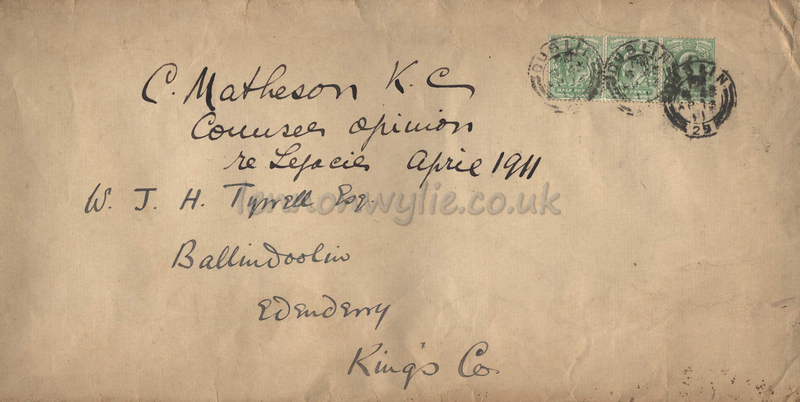 C. Matheson K.C
Counsel opinion
re Legacies April 1911
W. J. H. Tyrrell Esq.
Ballindoolin
Edenderry
King's Co.
DUBLIN
DUBLIN
AP 13
11
29